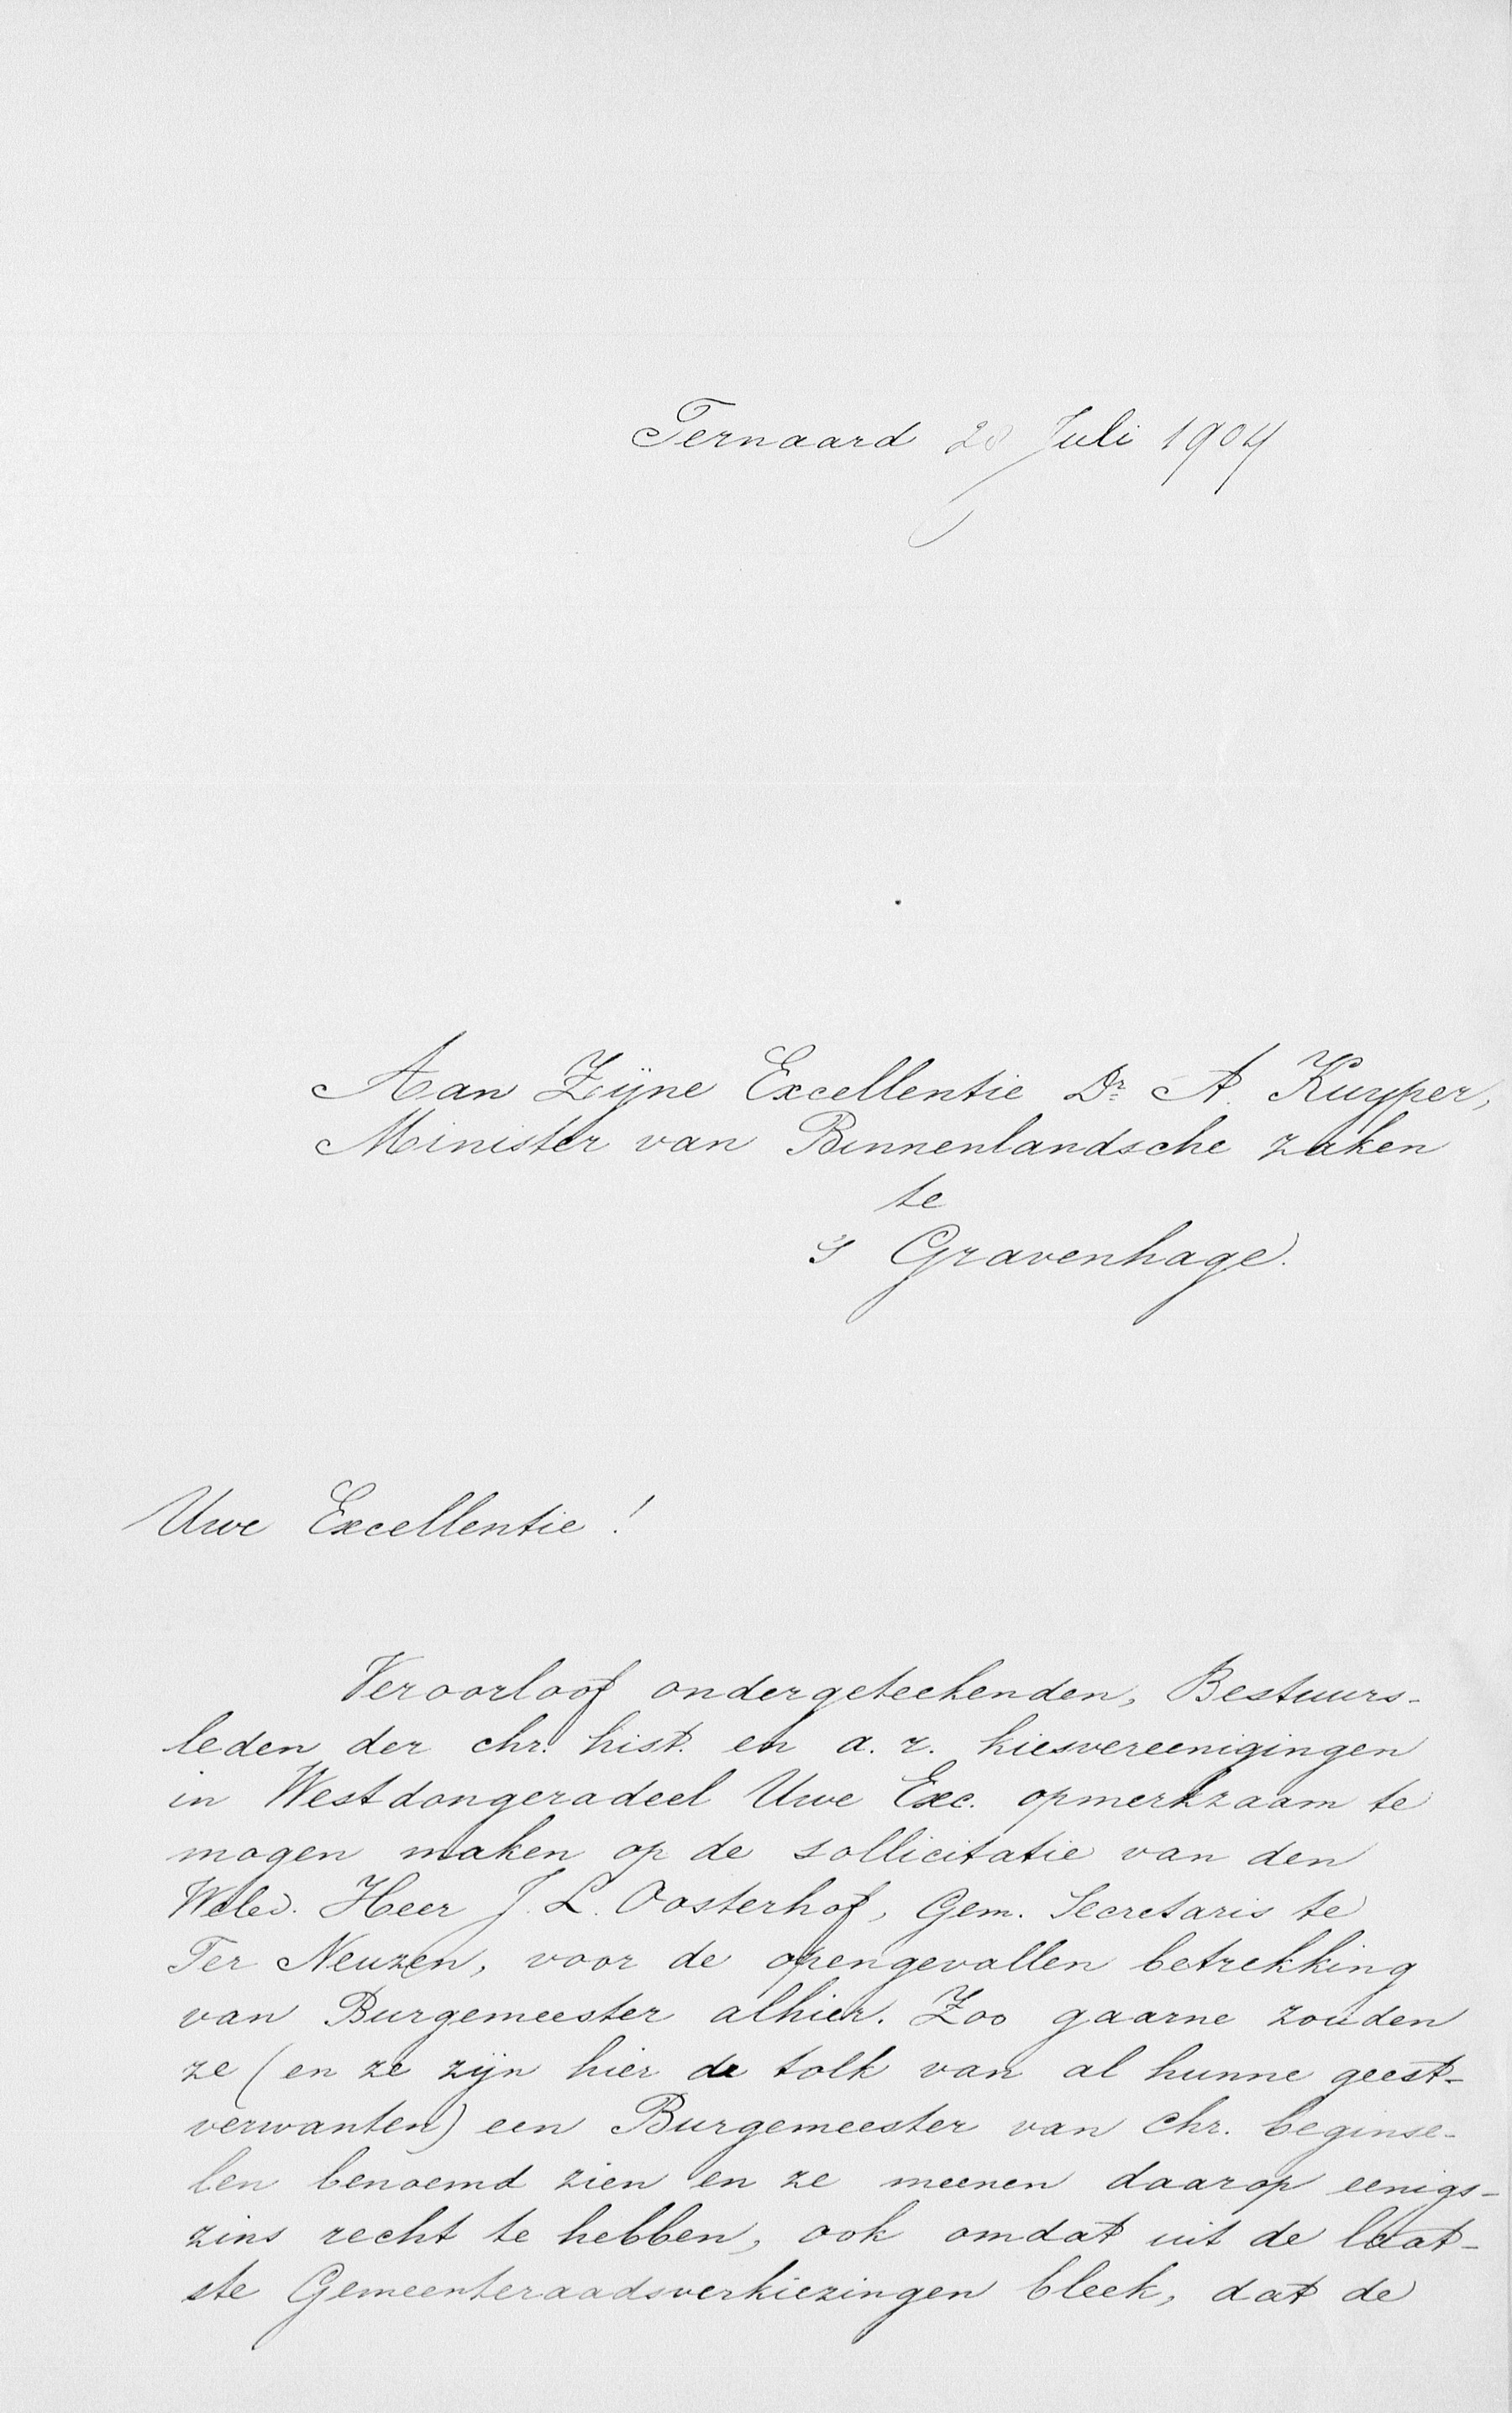 Ternaard 20 Juli 1904
Aan Zijne Excellentie Dr. A. Kuyper,
Minister van Binnenlandsche zaken
te
's Gravenhage.
Uwe Excellentie!
Veroorloof ondergeteekenden, Bestuurs-
leden der chr. hist. en a. r. kiesvereenigingen
in Westdongeradeel Uwe Exc. opmerkzaam te
mogen maken op de sollicitatie van den
Weled. Heer J. L. Oosterhof, Gem. Secretaris te
Ter Neuzen, voor de opengevallen betrekking
van Burgemeester alhier. Zoo gaarne zouden
ze (en ze zijn hier de tolk van al hunne geest-
verwanten) een Burgemeester van chr. beginse-
len benoemd zien en ze meenen daarop eenigs-
zins recht te hebben, ook omdat uit de laat-
ste Gemeenteraadsverkiezingen bleek, dat de